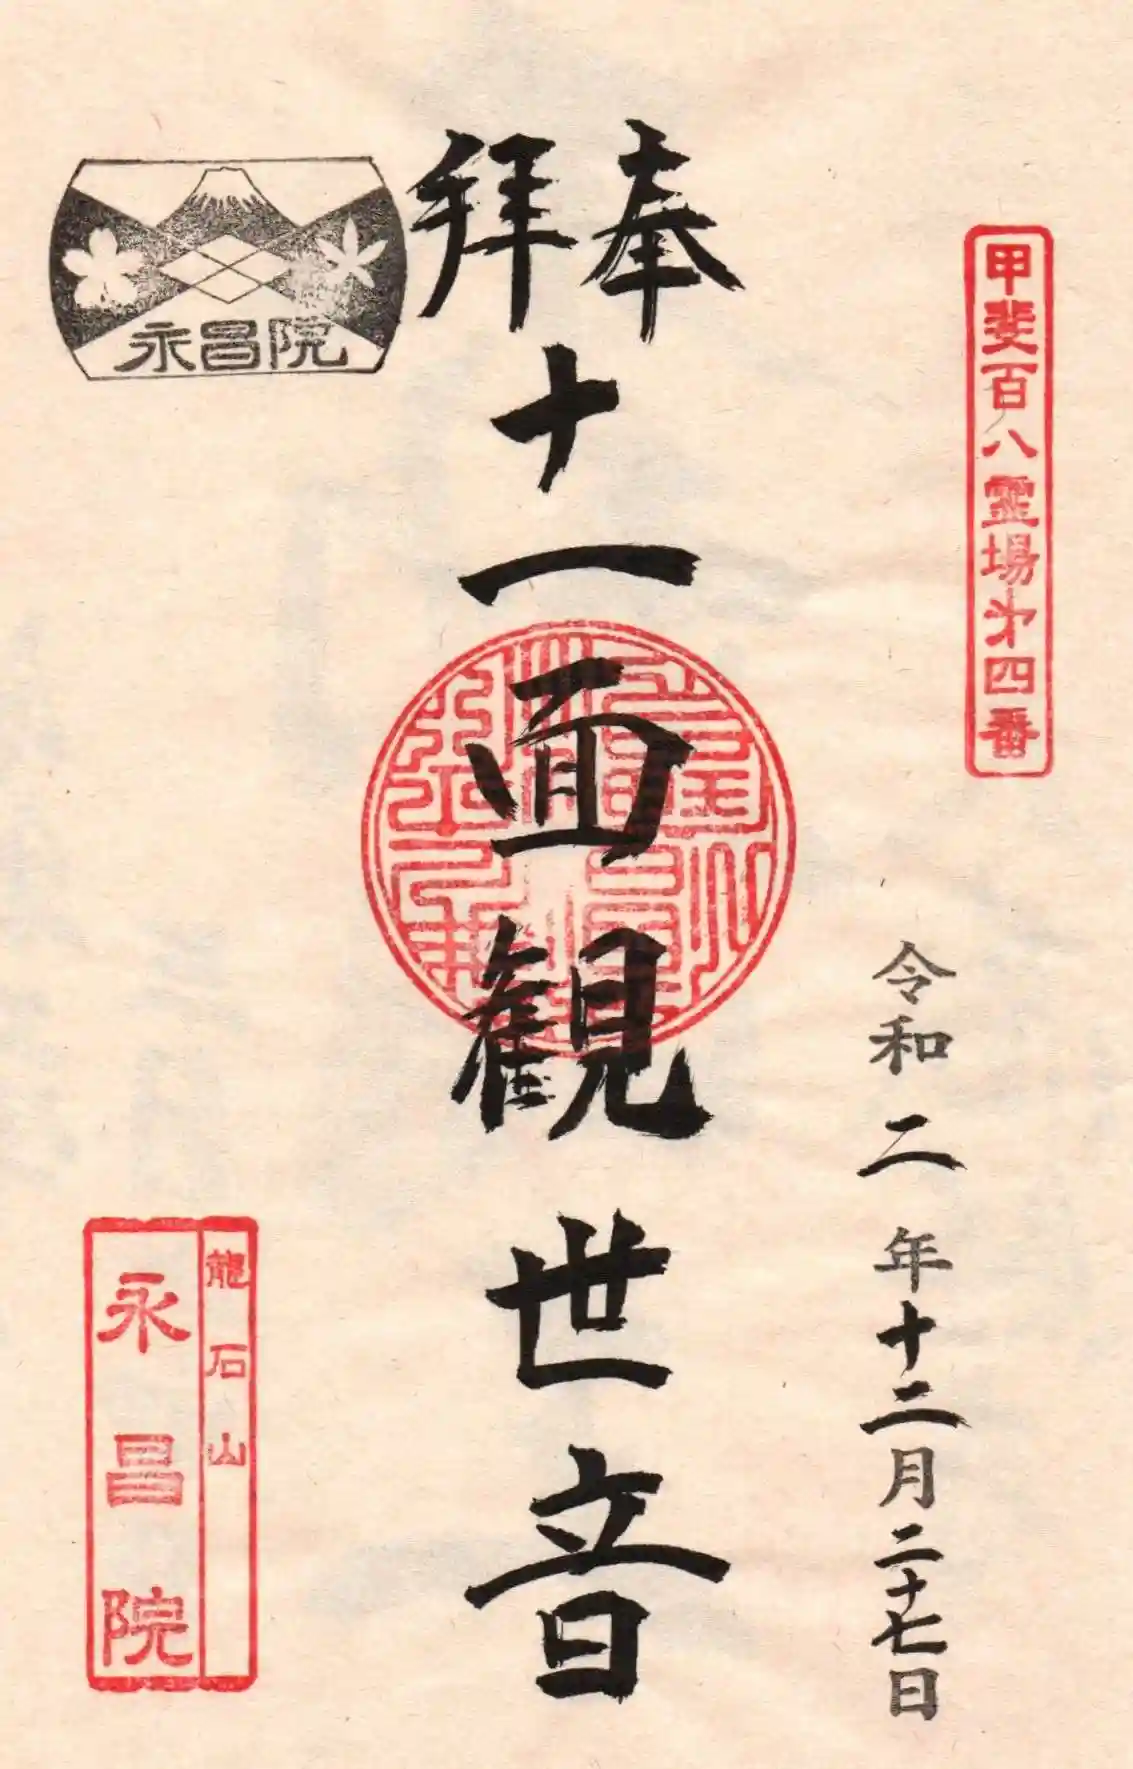 甲斐百八霊場第四番
令和二年十二月二十七日
奉拝
十一面観世音
永昌院
龍石山
永昌院